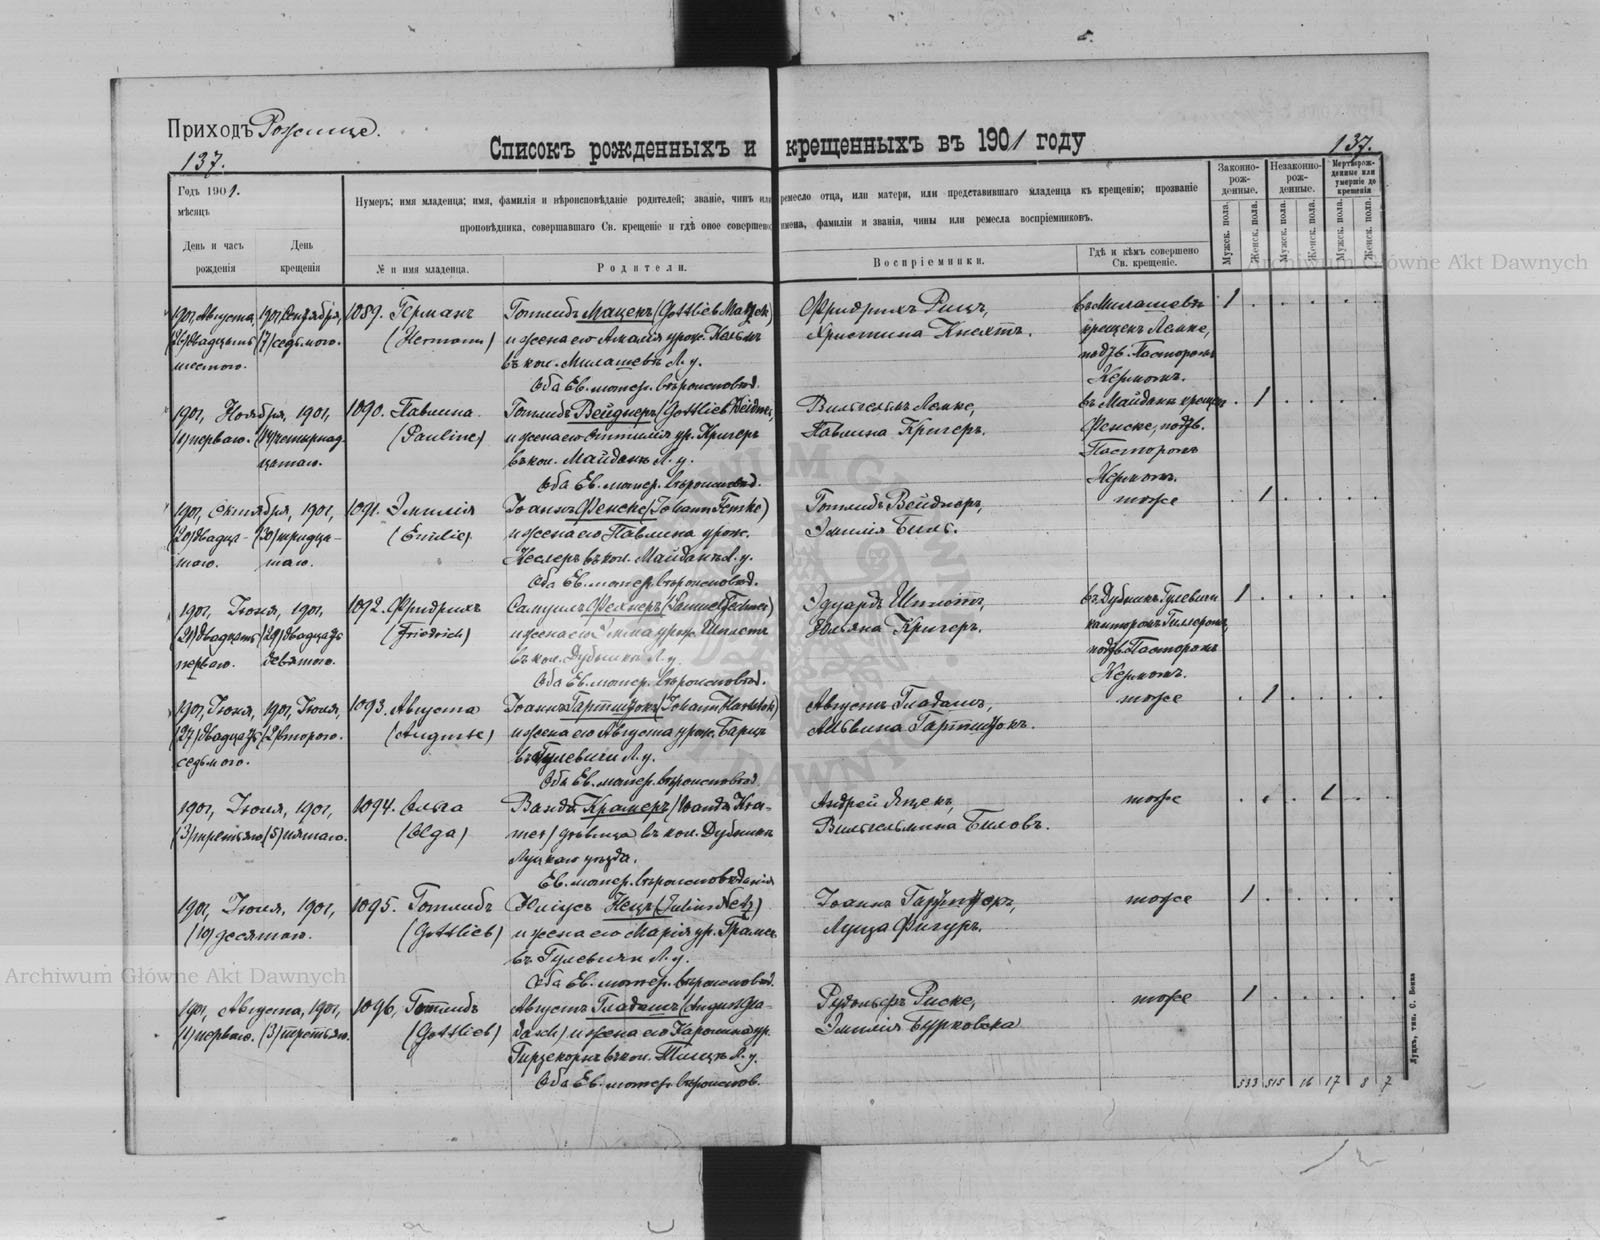 Приходъ Рожище.
137.
137.
Списокъ рожденныхъ и крещенныхъ въ 1901 году
Годъ 1901.
мѣсяцъ
День и часъ рожденія
День крещенія
Нумеръ; имя младенца; имя, фамилія и вѣроисповѣданіе родителей; званіе, чинъ или ремесло отца, или матери, или представившаго младенца къ крещенію; прозваніе
проповѣдника, совершавшаго Св. крещеніе и гдѣ оное совершено; имена, фамиліи и званія, чины или ремесла воспріемниковъ.
№ и имя младенца.
Родители.
Воспріемники.
Гдѣ и кѣмъ совершено Св. крещеніе.
Законно-рож-денные.
Незаконно-рож-денные.
Мертворож-денные или умершіе до крещенія
Мужск. пола.
Женск. пола.
Мужск. пола.
Женск. пола.
Мужск. пола.
Женск. пола.
1901, Августа, 1901, Сентября, 1089. Германъ Готлибъ Мацекъ (Gottlieb Matzek) Фридрихъ Рицъ, въ Милашевѣ 1
(26) двадцать (7) седьмого. (Hermann) и жена его Амалія урож. Христина Кнехтъ. крещенъ Лемке,
шестого. въ кол. Милашевъ Л. у. подтв. Пасторомъ
Оба Ев. лютер. вѣроисповѣд. Кермомъ.
1901, Ноября, 1901, 1090. Павлина Готлибъ Вейднеръ (Gottlieb Weidner) Вильгельмъ Лемке, въ Майданѣ крещен 1
(1) перваго. (14) четырнад- (Pauline) и жена его Оттилія ур. Кригеръ Павлина Кригеръ. Фенске, подтв.
цатаго. въ кол. Майданъ Л. у. Пасторомъ
Оба Ев. лютер. вѣроисповѣд. Кермомъ.
1901, Октября, 1901, 1091. Эмилія Іоганъ Фенске (Johann Fenske) Готлибъ Вейднеръ, тоже 1
(20) двадца- (30) тридца- (Emilie) и жена его Павлина урож. Эмилія Биль.
таго. таго. Кеслеръ въ кол. Майданъ Л. у.
Оба Ев. лютер. вѣроисповѣд.
1901, Іюня, 1901, 1092. Фридрихъ Самуилъ Фехнеръ (Samuel Fechner) Эдуардъ въ Дубникѣ Гулевичи 1
(21) двадцать (29) двадцать (Friedrich) и жена его Эмма урож. Юльяна Кригеръ. канторомъ Гиллеромъ,
перваго. девятого. въ кол. Дубникъ Л. у. подтв. Пасторомъ
Оба Ев. лютер. вѣроисповѣд. Кермомъ.
1901, Іюня, 1901, Іюля, 1093. Августа Іоганъ (Johann) Августъ Гладашъ, тоже 1
(27) двадцать (2) второго. (Auguste) и жена его Августа урож. Альвина
седьмого. въ Гулевичи Л. у.
Оба Ев. лютер. вѣроисповѣд.
1901, Іюля, 1901, 1094. Ольга Ванда Крамеръ (Wanda Kra- Андрей Яцекъ, тоже 1
(3) третьяго (5) пятаго. (Olga) mer) дѣвица въ кол. Дубникъ Вильгельмина Биловъ.
Луцкаго уѣзда.
Ев. лютер. вѣроисповѣданія
1901, Іюля, 1901, 1095. Готлибъ Юліусъ Нецъ (Julius Netz) Іоганъ тоже 1
(10) десятаго. (Gottlieb) и жена его Марія ур. Луиза Фигуръ.
въ Гулевичи Л. у.
Оба Ев. лютер. вѣроисповѣд.
1901, Августа, 1901, 1096. Готлибъ Августъ Гладашъ (August Gla- Рудольфъ Риске, тоже 1
(1) перваго. (3) третьяго. (Gottlieb) dasch) и жена его Каролина ур. Эмилія Бурковска
въ кол. Л. у.
Оба Ев. лютер. вѣроиспов.
533 515 16 17 8 7
Луцкъ, тип. С. Бонка
Archiwum Główne Akt Dawnych
Archiwum Główne Akt Dawnych